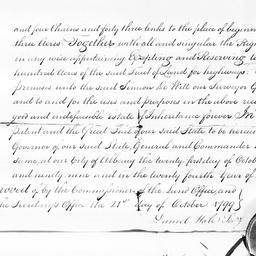 and four Chains and forty three links to the place of beginn
three Acres. Together with all and singular the Righ
in any wise appertaining Excepting and Reserving to
hundred Acres of the said Tract of Land for highways:
premises unto the said Simeon De Witt our Surveyor G
and to and for the uses and purposes in the above reci
good and indefeasible estate of Inheritance forever. In
Patent and the Great Seal of our said State to be hereu
Governor of our said State, General and Commander
same, at our City of Albany the twenty first day of Octob
and ninety nine and in the twenty fourth Year of
roved of by the Commissioners of the Land Office, and
the Secretarys Office the 21st day of October 1799
Daniel Hale Secy